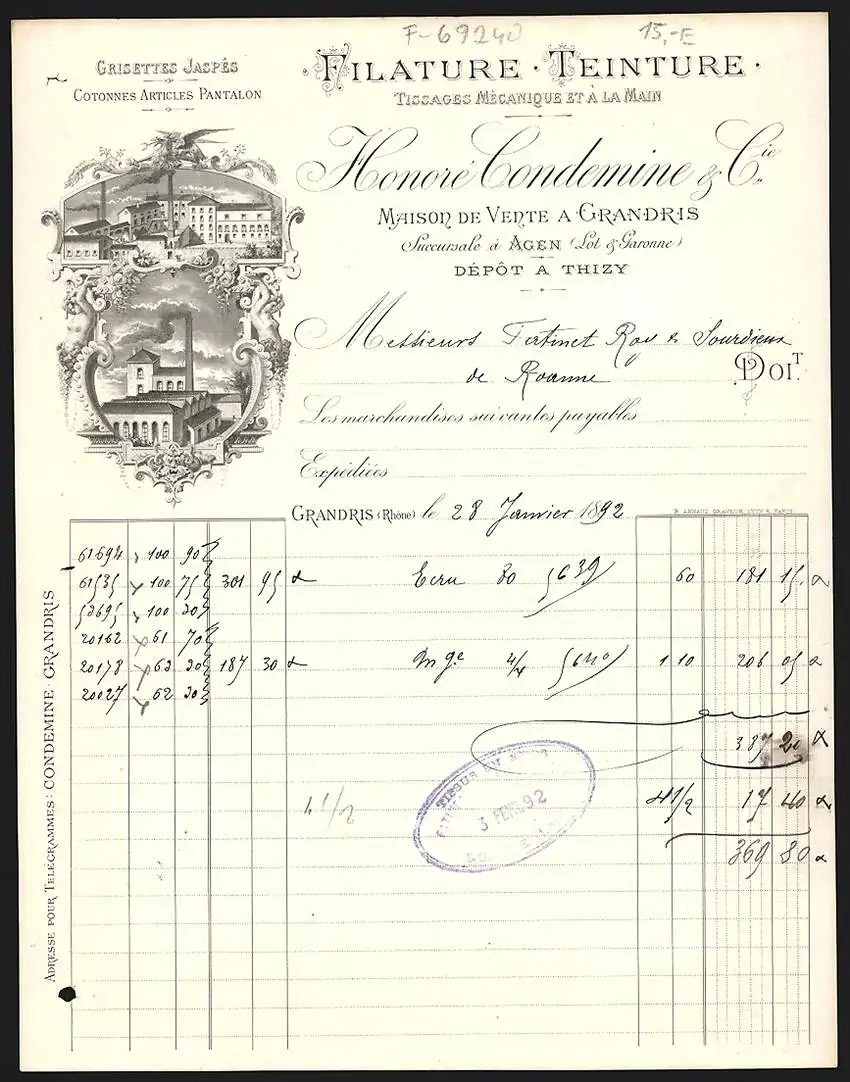 F-69240 15,-E
GRISETTES JASPÉS
COTONNES ARTICLES PANTALON
FILATURE · TEINTURE ·
TISSAGES MÉCANIQUE ET À LA MAIN
Honoré Condemine & Cie
MAISON DE VENTE A GRANDRIS
Succursale à AGEN (Lot & Garonne)
DÉPÔT A THIZY
Messieurs Fatinet Roy & Sourdieux
de Roanne DOIT
Les marchandises suivantes payables
Expédiées
GRANDRIS (Rhône) le 28 Janvier 1892
61694 100 90
61535 100 75 301 95 Ecru 80 5639 60 181 15
52695 100 30
20162 61 70
20178 63 30 187 30 Mge 4/4 5640 1 10 206 05
20027 62 30
387 20
4 1/2
4 1/2 17 40
369 80
3 FEVR 92
ADRESSE POUR TELÉGRAMMES: CONDEMINE GRANDRIS